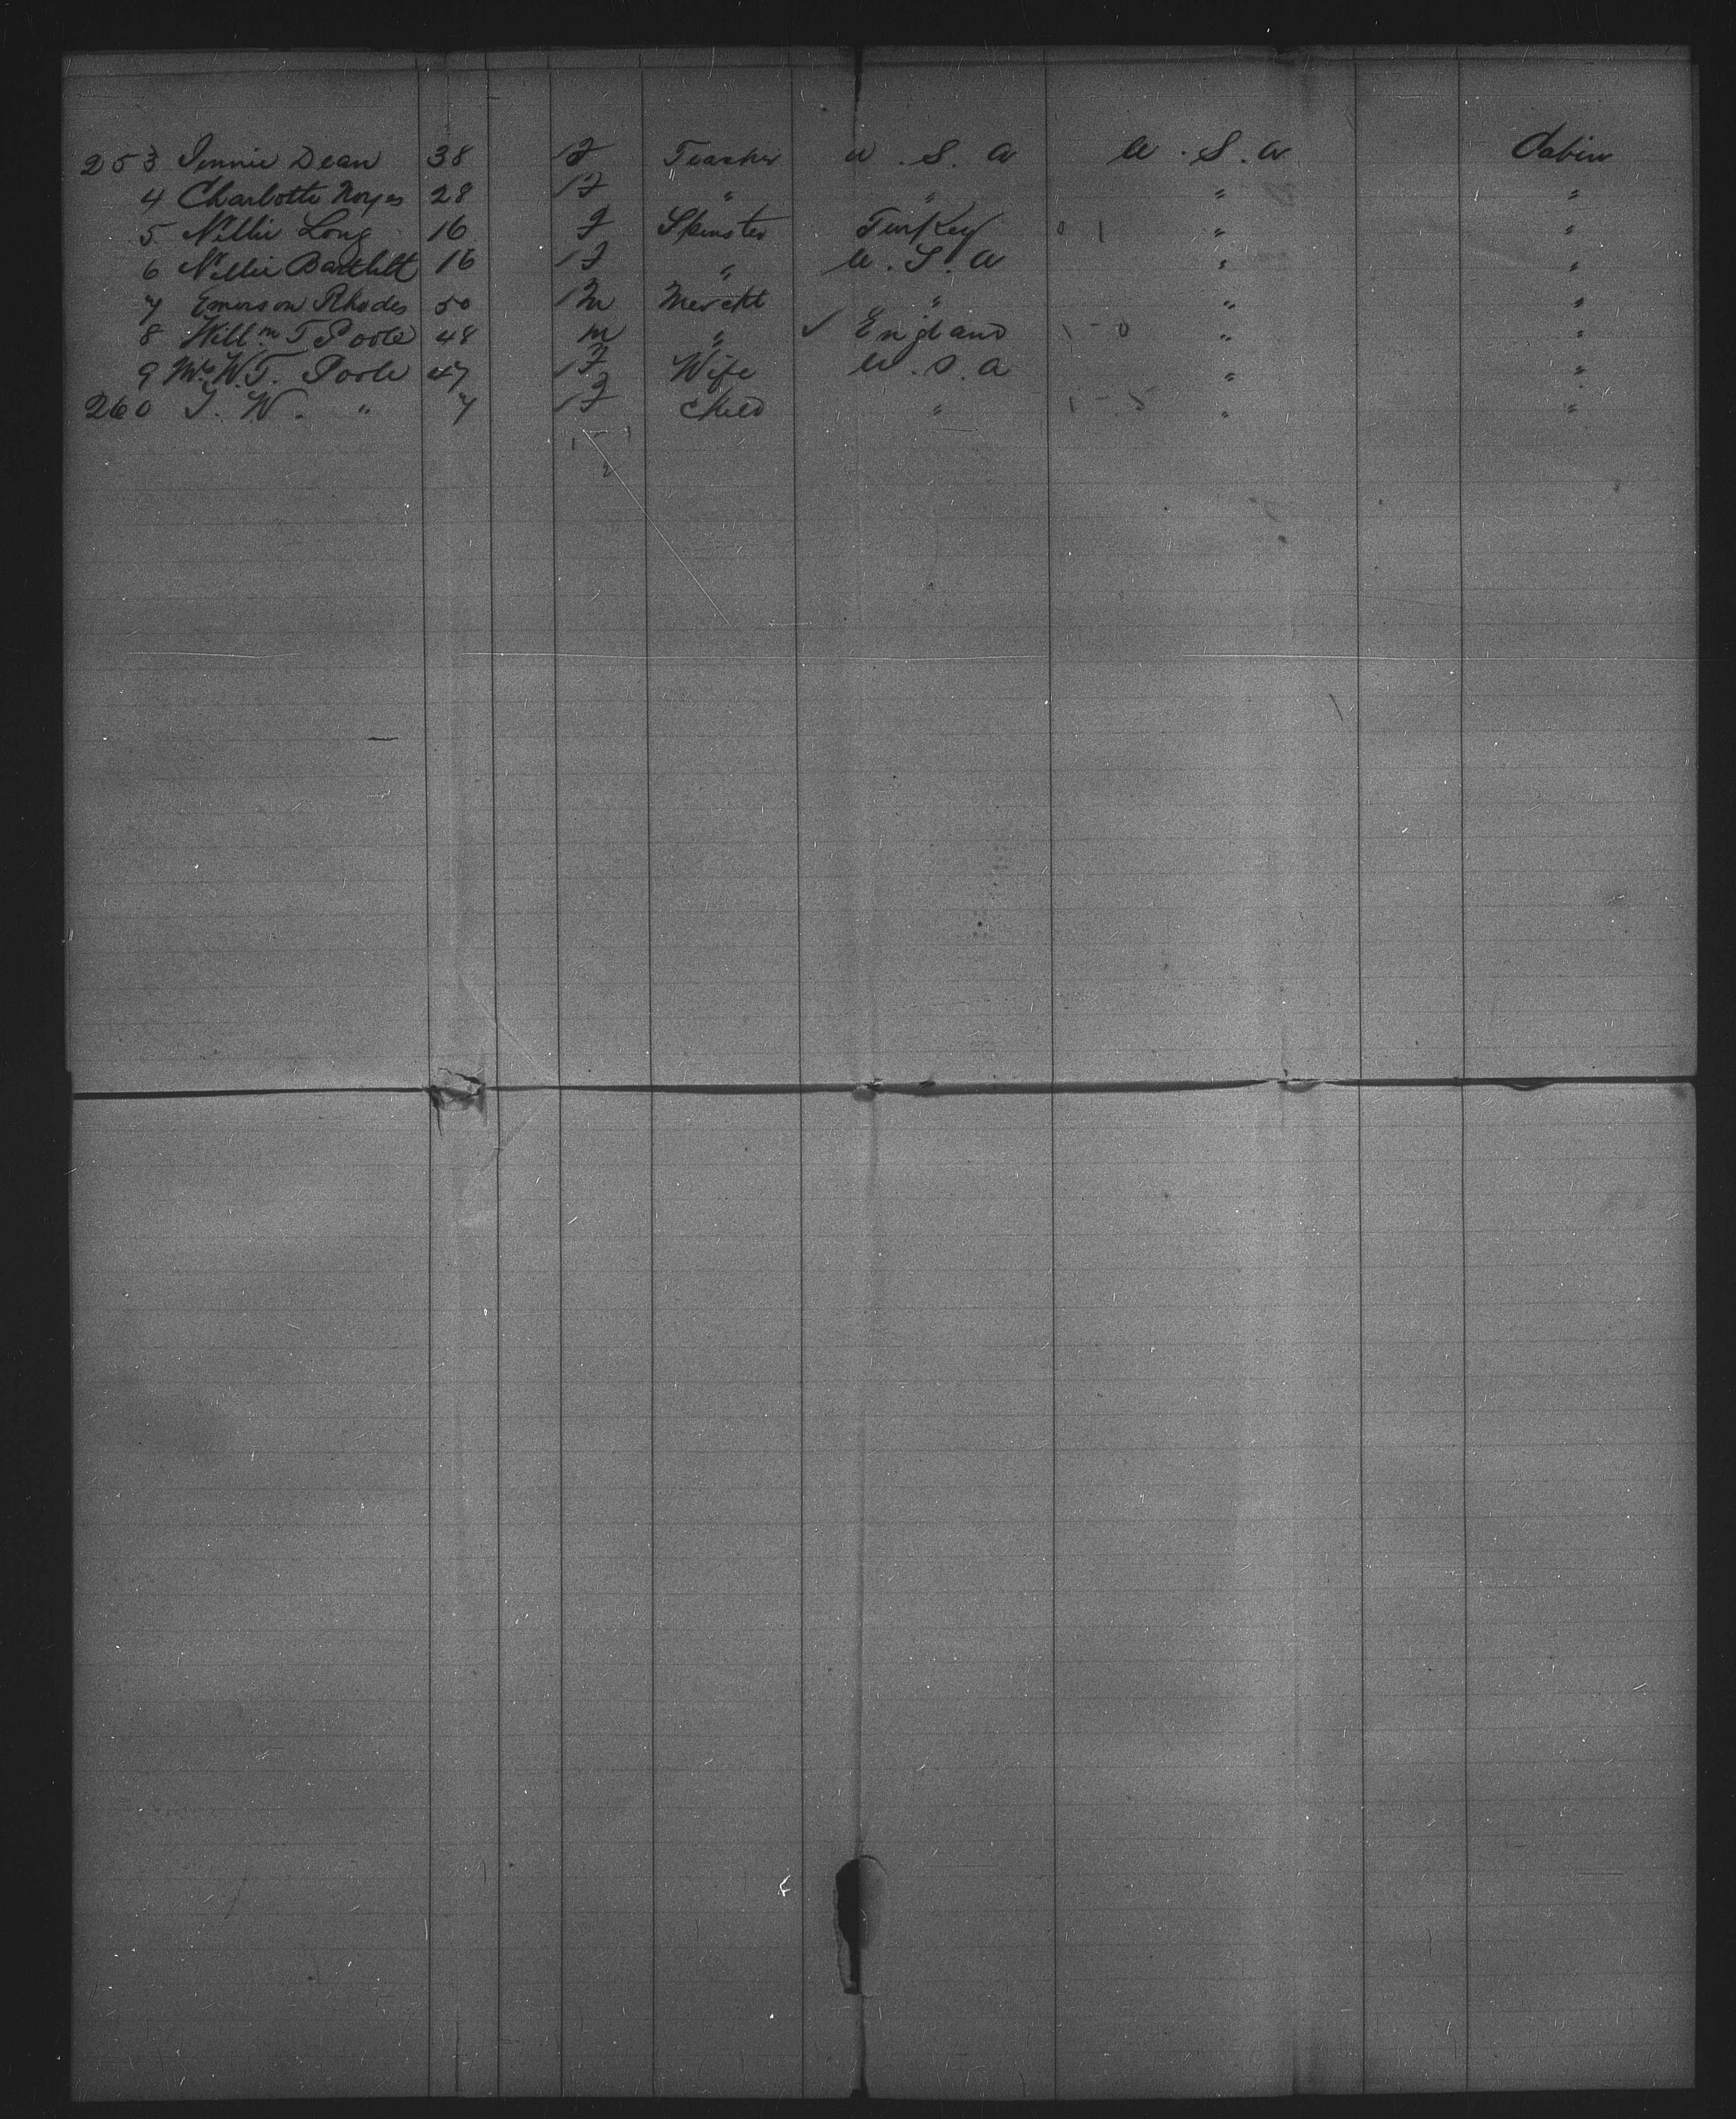 253 Jennie Dean 38 F Teacher U.S.A U.S.A Cabin
4 Charlotte Noyes 28 F " " " "
5 Nellie Long 16 F Spinster Turkey 0 1 " "
6 Nellie Bartlett 16 F " U.S.A " "
7 Emerson Rhodes 50 M Mercht " " "
8 Willm T Poole 48 M " ✓ England 1-0 " "
9 Mrs W.T. Poole 47 F Wife U.S.A " "
260 T. W. " 7 F Child " 1-5 " "